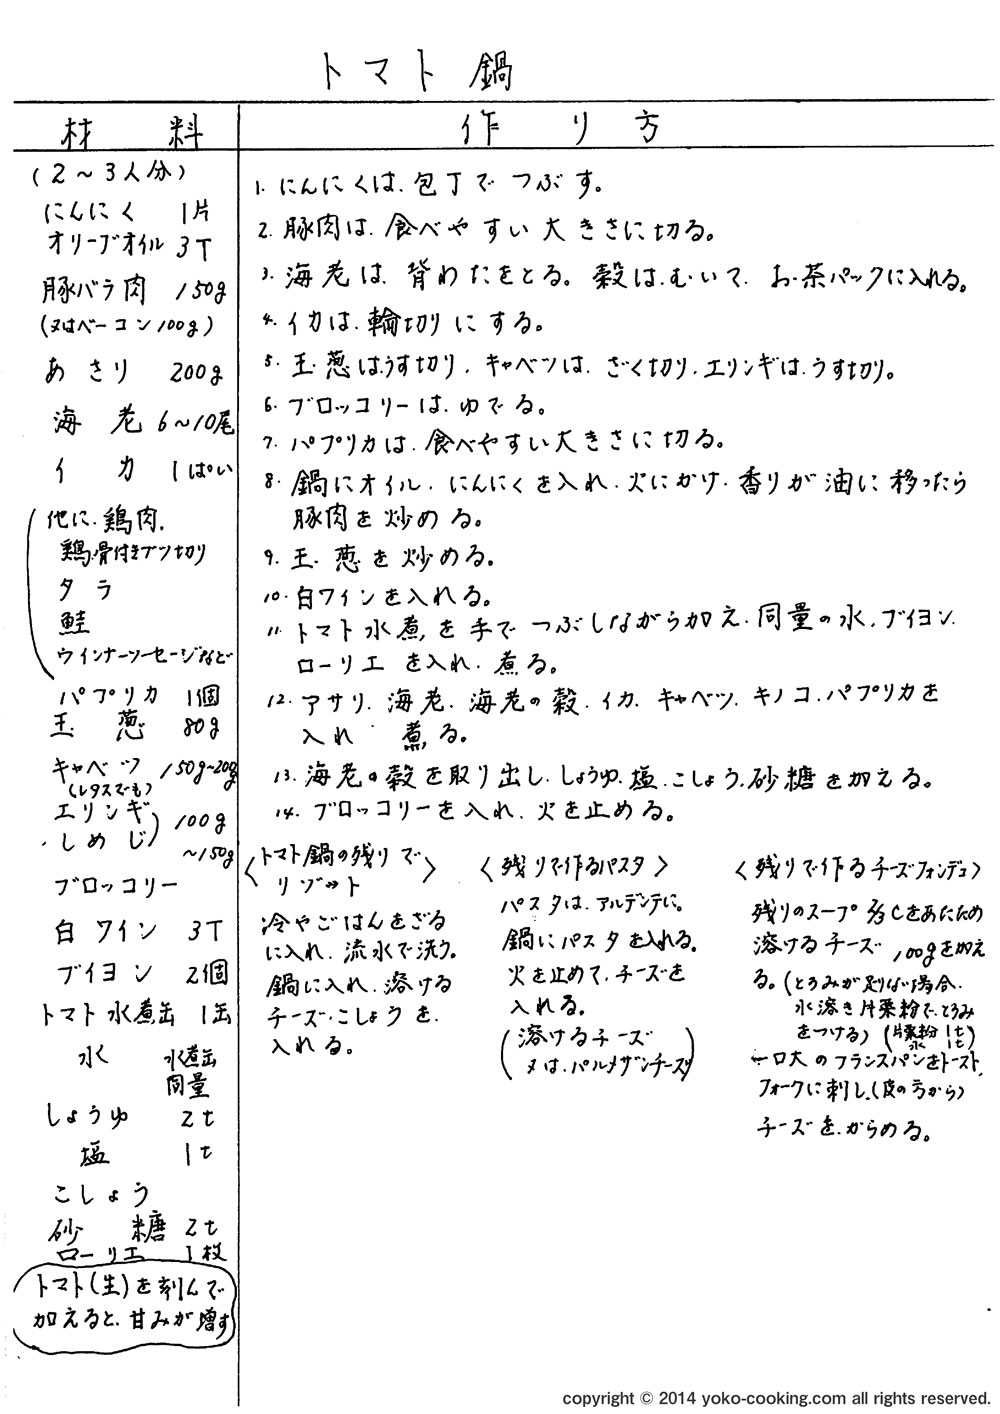 トマト鍋
材料
作り方
(2～3人分)
にんにく 1片
オリーブオイル 3T
豚バラ肉 150g
(又はベーコン100g)
あさり 200g
海老 6～10尾
イカ 1ぱい
(他に、鶏肉、
鶏骨付きブツ切り
タラ
鮭
ウインナーソーセージなど
パプリカ 1個
玉葱 80g
キャベツ 150g～200g
(レタスでも)
エリンギ
しめじ) 100g
～150g
ブロッコリー
白ワイン 3T
ブイヨン 2個
トマト水煮缶 1缶
水 水煮缶
同量
しょうゆ 2t
塩 1t
こしょう
砂糖 2t
ローリエ 1枚
トマト(生)を刻んで
加えると、甘みが増す
1. にんにくは、包丁でつぶす。
2. 豚肉は、食べやすい大きさに切る。
3. 海老は、背わたをとる。殻は、むいて、お茶パックに入れる。
4. イカは、輪切りにする。
5. 玉葱はうす切り、キャベツは、ざく切り、エリンギは、うす切り。
6. ブロッコリーは、ゆでる。
7. パプリカは、食べやすい大きさに切る。
8. 鍋にオイル、にんにくを入れ、火にかけ、香りが油に移ったら
豚肉を炒める。
9. 玉葱を炒める。
10. 白ワインを入れる。
11. トマト水煮を手でつぶしながら加え、同量の水、ブイヨン、
ローリエを入れ、煮る。
12. アサリ、海老、海老の殻、イカ、キャベツ、キノコ、パプリカを
入れ 煮る。
13. 海老の殻を取り出し、しょうゆ、塩、こしょう、砂糖を加える。
14. ブロッコリーを入れ、火を止める。
〈トマト鍋の残りで
リゾット〉
冷やごはんをざる
に入れ、流水で洗う。
鍋に入れ、溶ける
チーズ、こしょうを、
入れる。
〈残りで作るパスタ〉
パスタは、アルデンテに。
鍋にパスタを入れる。
火を止めて、チーズを
入れる。
(溶けるチーズ
又は、パルメザンチーズ)
〈残りで作るチーズフォンデュ〉
残りのスープ 2/3Cをあたため
溶けるチーズ 100gを加え
る。(とろみが足りない場合、
水溶き片栗粉で、とろみ
をつける) (片栗粉 1t
水 1t)
一口大のフランスパンをトースト、
フォークに刺し、(皮の方から)
チーズを、からめる。
copyright © 2014 yoko-cooking.com all rights reserved.